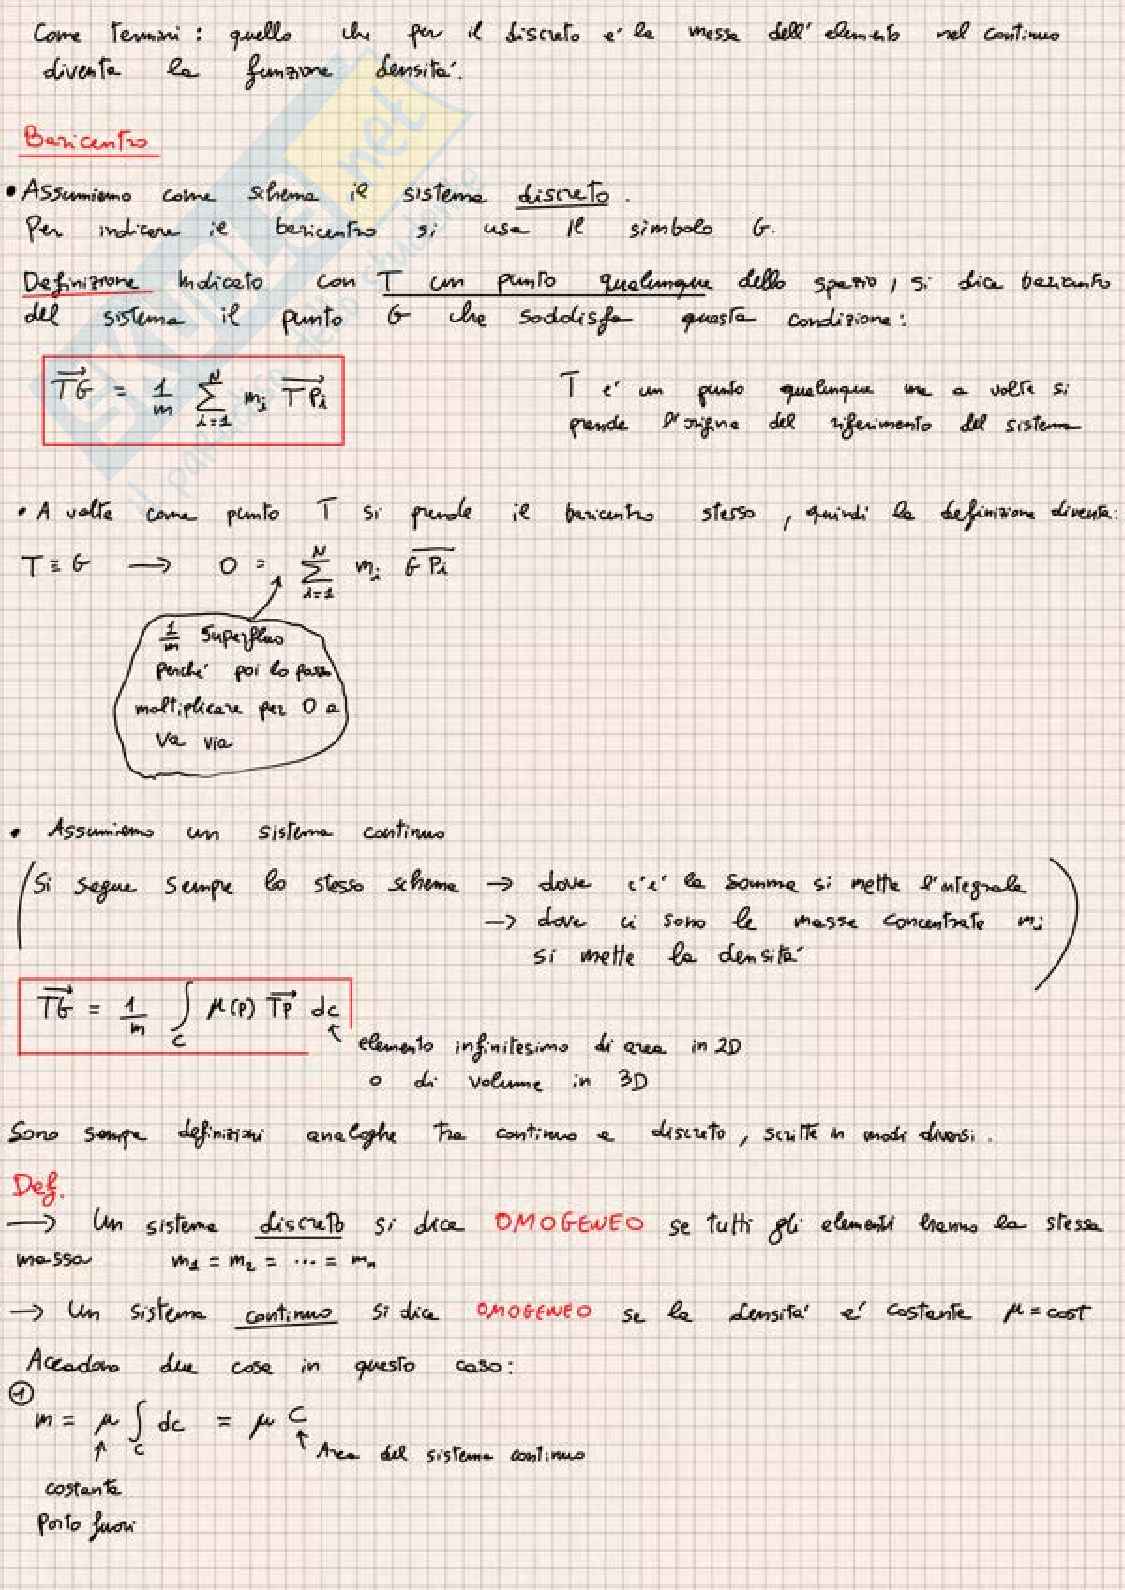 Come termini : quello che per il discreto e' la massa dell' elemento nel continuo
diventa la funzione densita'.
Baricentro
• Assumiamo come schema il sistema discreto.
Per indicare il baricentro si usa il simbolo G.
Definizione Indicato con T un punto qualunque dello spazio, si dice baricentro
del sistema il punto G che soddisfa questa condizione:
TG = 1/m Σ i=1 N mi TPi
T e' un punto qualunque ma a volte si
prende l'origine del riferimento del sistema
• A volte come punto T si prende il baricentro stesso, quindi la definizione diventa:
T ≡ G → 0 = Σ i=1 N mi GPi
1/m superfluo
perche' poi lo posso
moltiplicare per 0 e
va via
• Assumiamo un sistema continuo
(Si segue sempre lo stesso schema → dove c'e' la somma si mette l'integrale
→ dove ci sono le masse concentrate mi
si mette la densita')
TG = 1/m ∫C μ(P) TP dc
elemento infinitesimo di area in 2D
o di volume in 3D
Sono sempre definizioni analoghe tra continuo e discreto, scritte in modi diversi.
Def.
→ Un sistema discreto si dice OMOGENEO se tutti gli elementi hanno la stessa
massa m1 = m2 = ... = mn
→ Un sistema continuo si dice OMOGENEO se la densita' e' costante μ = cost
Accadono due cose in questo caso:
①
m = μ ∫C dc = μ C
Area del sistema continuo
costante
Porto fuori
SKUOLA.net